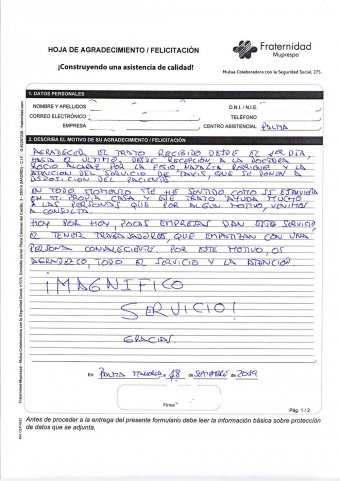 HOJA DE AGRADECIMIENTO / FELICITACIÓN
Fraternidad
Muprespa
¡Construyendo una asistencia de calidad!
Mutua Colaboradora con la Seguridad Social, 275
1. DATOS PERSONALES
NOMBRE Y APELLIDOS
D.N.I. / N.I.E.
CORREO ELECTRÓNICO
TELÉFONO
EMPRESA
CENTRO ASISTENCIAL PALMA
2. DESCRIBA EL MOTIVO DE SU AGRADECIMIENTO / FELICITACIÓN
AGRADECER EL TRATO RECIBIDO DESDE EL 1ER DÍA
HASTA EL ULTIMO. DESDE RECEPCIÓN, A LA DOCTORA
ROCIO ALCARAZ POR LA FISIO NATALIA ENRIQUE Y LA
ATENCION DEL SERVICIO DE TAXIS, QUE SE PONEN A
DISPOSICION DEL PACIENTE.
EN TODO MOMENTO ME HE SENTIDO COMO SI ESTUVIERA
EN MI PROPIA CASA Y ESE TRATO AYUDA MUCHO
A LAS PERSONAS QUE POR ALGUN MOTIVO, VENIMOS
A CONSULTA.
HOY POR HOY, POCAS EMPRESAS DAN ESTE SERVICIO,
EL TENER TRABAJADORES, QUE EMPATIZAN CON UNA
PERSONA CONVALECIENTE. POR ESTE MOTIVO, OS
AGRADEZCO TODO EL SERVICIO Y LA ATENCIÓN
¡MAGNIFICO
SERVICIO!
GRACIAS
En: PALMA MALLORCA a 18 de SEPTIEMBRE de 2019
Firma
Pág. 1 / 2
Antes de proceder a la entrega del presente formulario debe leer la información básica sobre protección
de datos que se adjunta.